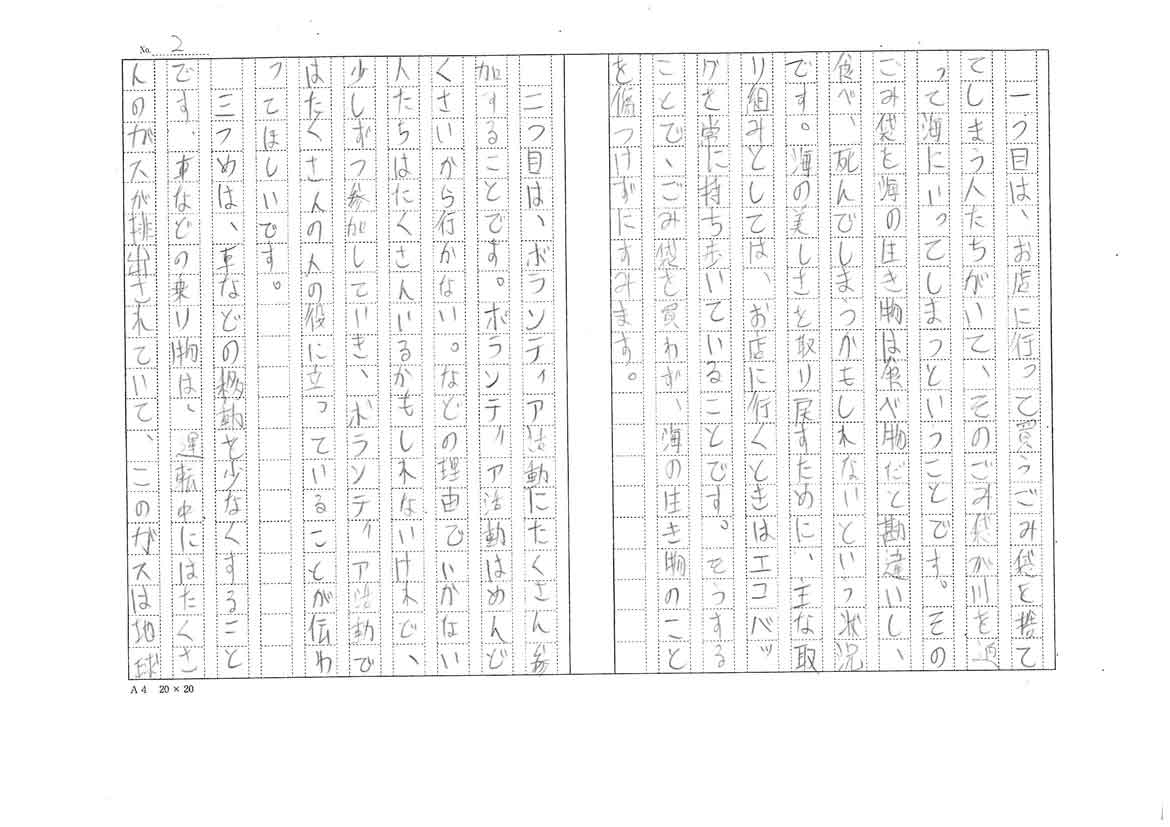 No. 2
一つ目は、お店に行って買うごみ袋を捨て
てしまう人たちがいて、そのごみ袋が川を通
って海にいってしまっということです。その
ごみ袋を海の生き物は食べ物だと勘違いし、
食べ、死んでしまうかもしれないという状況
です。海の美しさを取り戻すために、主な取
り組みとしては、お店に行くときはエコバッ
グを常に持ち歩いていることです。そうする
ことで、ごみ袋を買わず、海の生き物のこと
を傷つけずにすみます。
二つ目は、ボランティア活動にたくさん参
加することです。ボランティア活動はめんど
くさいから行かない。などの理由でいかない
人たちはたくさんいるかもしれないけれど、
少しずつ参加していき、ボランティア活動で
はたくさんの人の役に立っていることが伝わ
ってほしいです。
三つめは、車などの移動を少なくすること
です、車などの乗り物は、運転中にはたくさ
んのガスが排出されていて、このガスは地球
A4 20×20